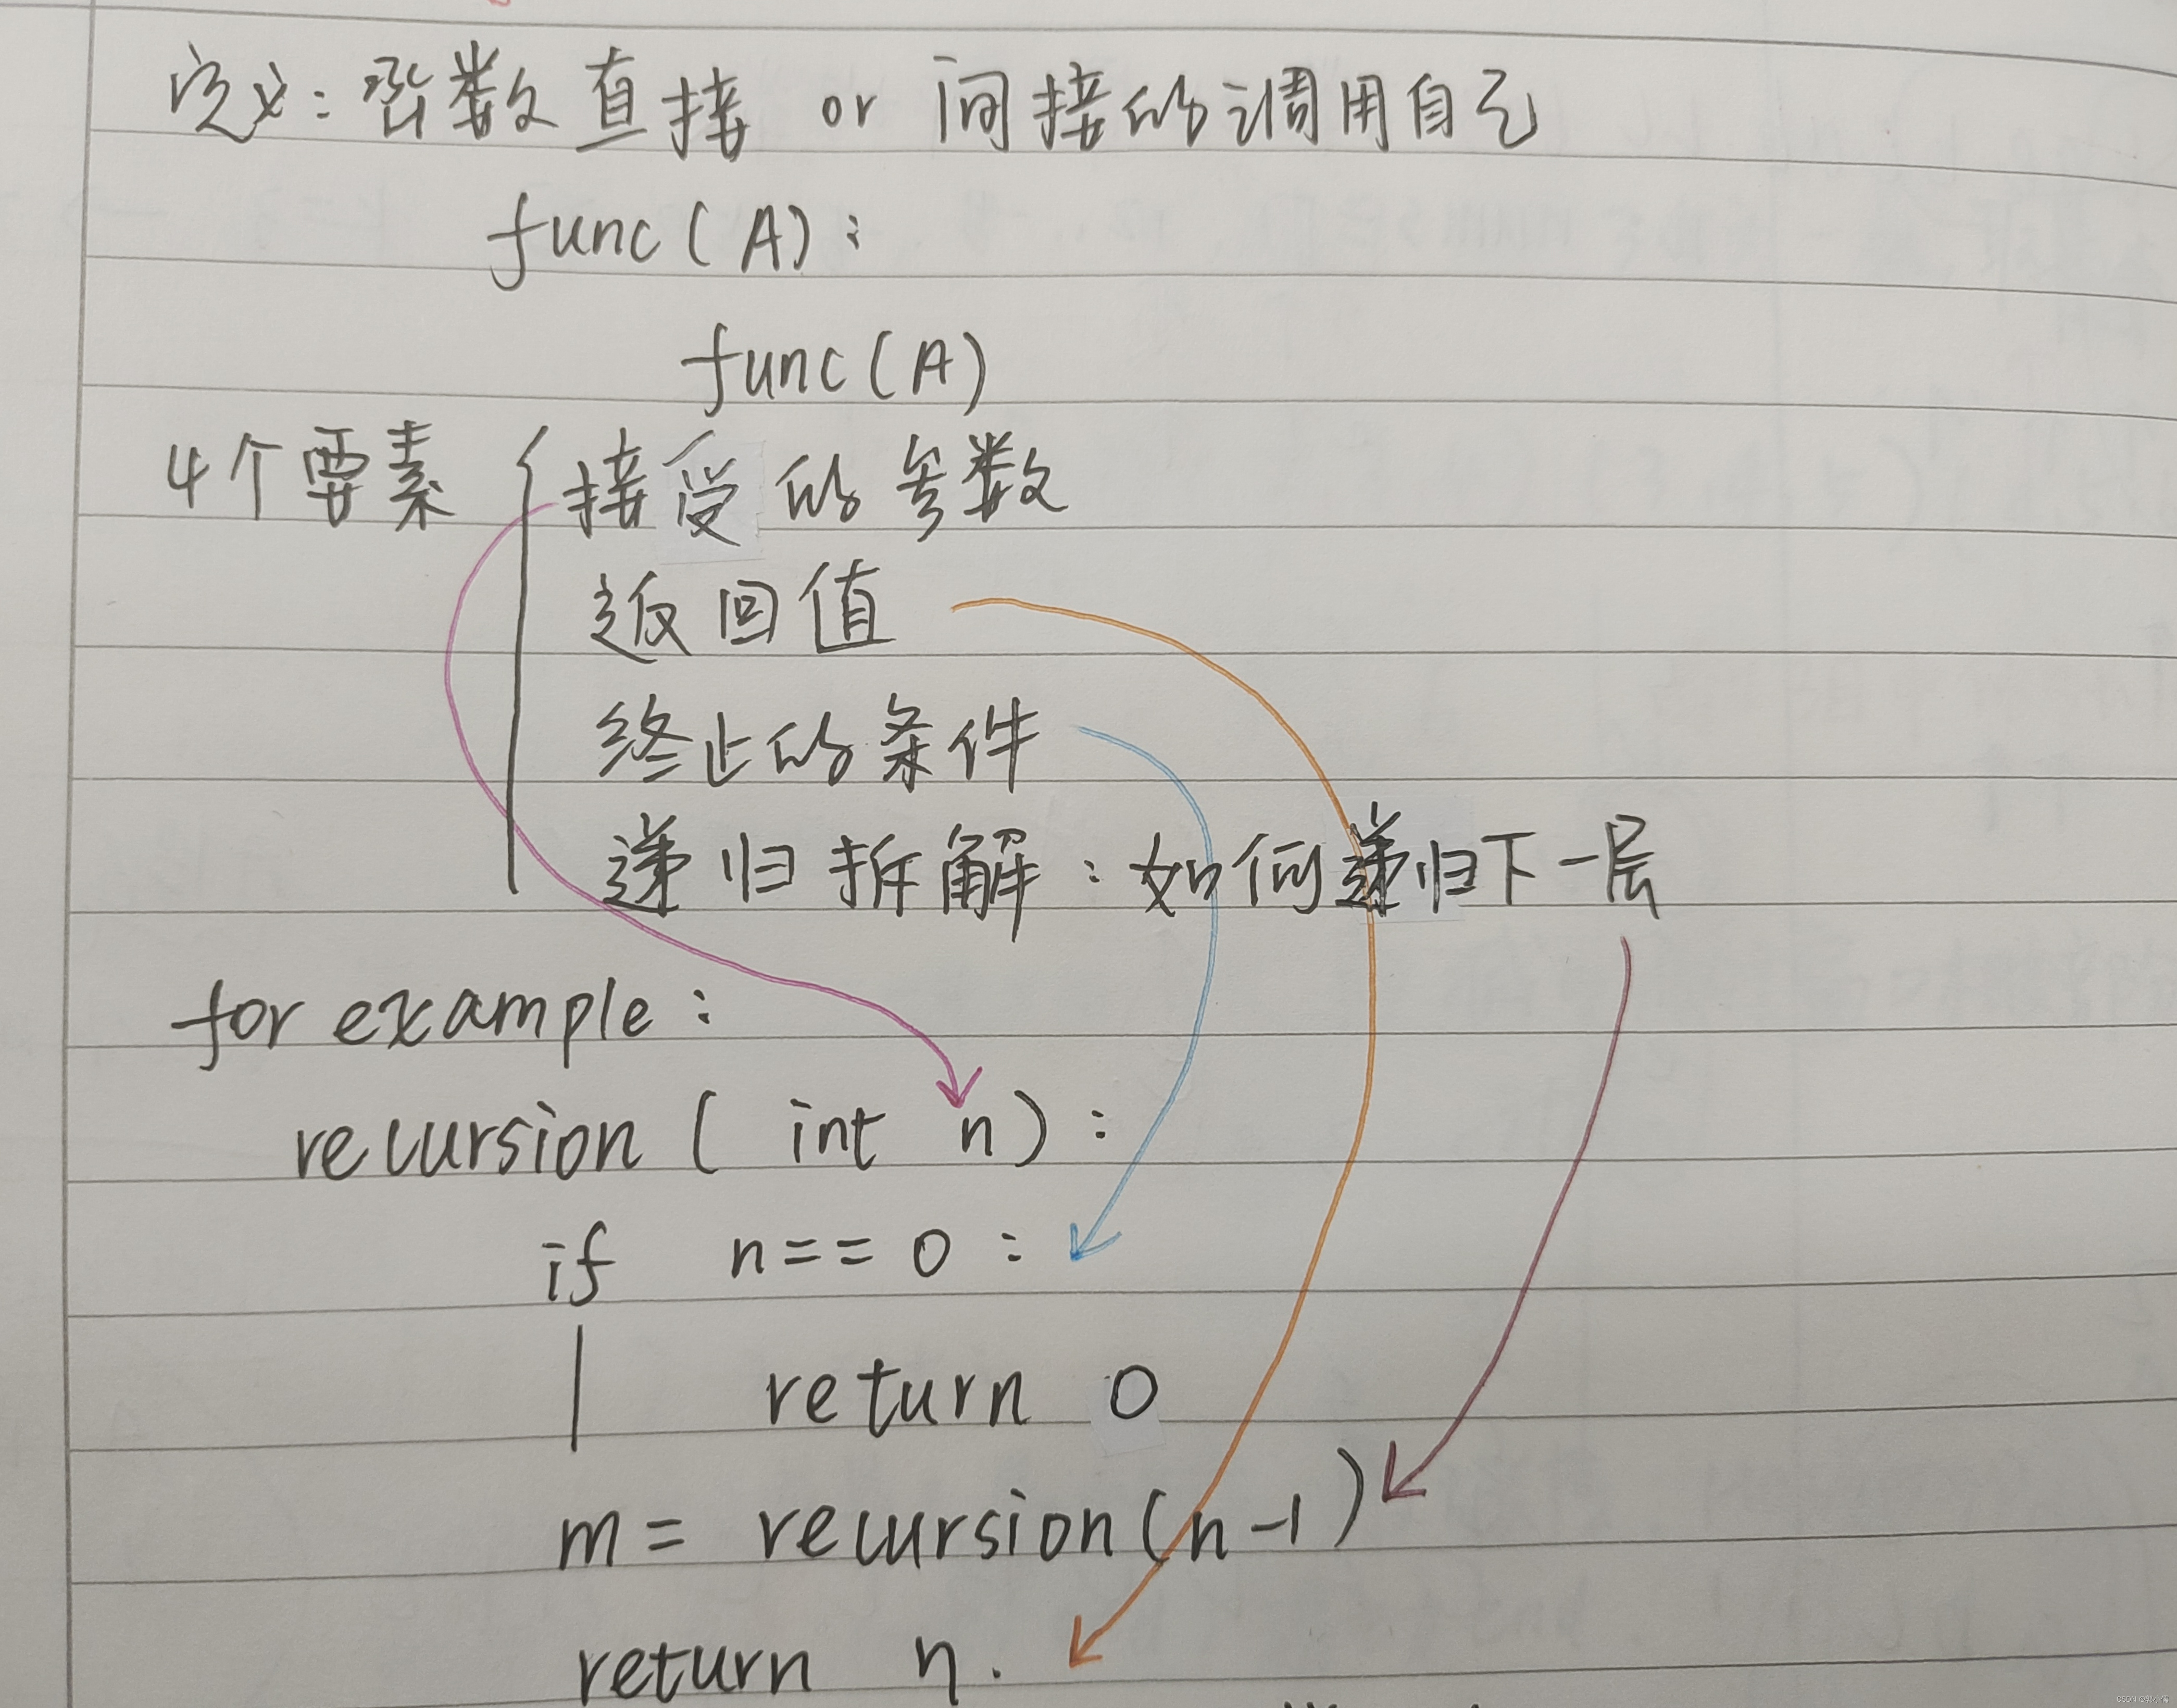 定义: 函数直接 or 间接的调用自己
func(A):
func(A)
4个要素 { 接受的参数
返回值
终止的条件
递归拆解: 如何递归下一层
for example:
recursion( int n):
if n== 0 :
return 0
m= recursion(n-1)
return n.